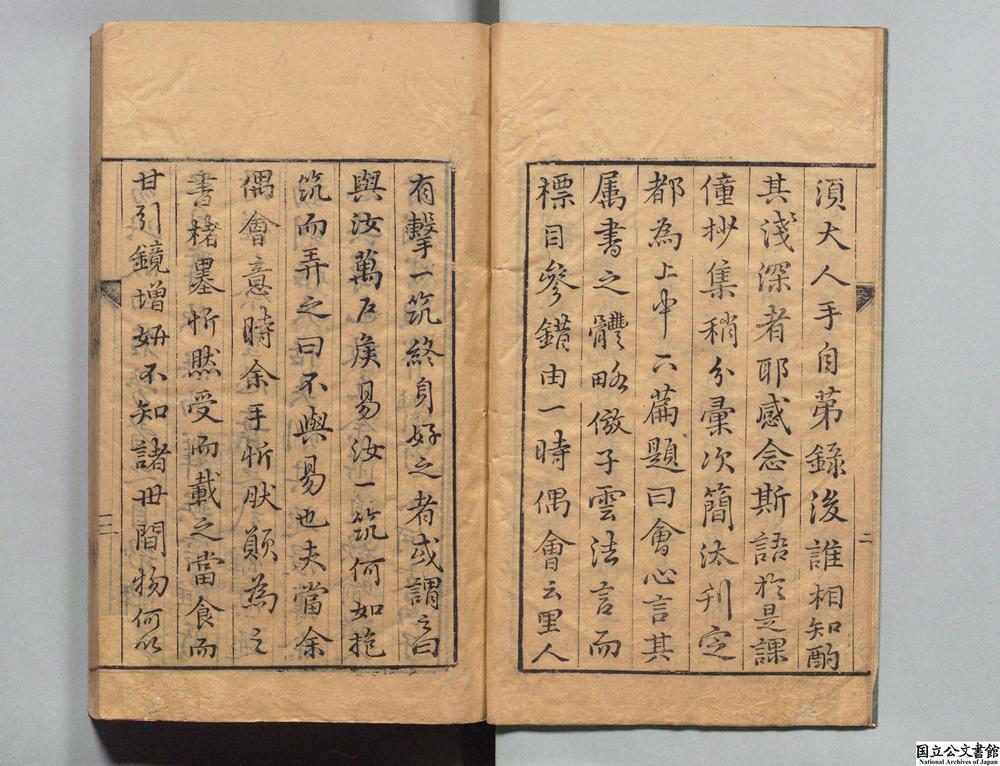 須大人手自第錄後誰相知酌
其淺深者耶感念斯語於是課
僮抄集稍分彙次簡汰刊定
都為上中下篇題曰會心言其
属書之體略倣子雲法言而
標目參錯由一時偶會云里人
二
有擊一筑終身好之者或謂之曰
與汝萬户侯易汝一筑何如抱
筑而弄之曰不與易也夫當余
偶會意時余手忻肰顛為之
書楮墨忻然受而載之當食而
甘引鏡增妍不知諸世間物何以
国立公文書館
National Archives of Japan